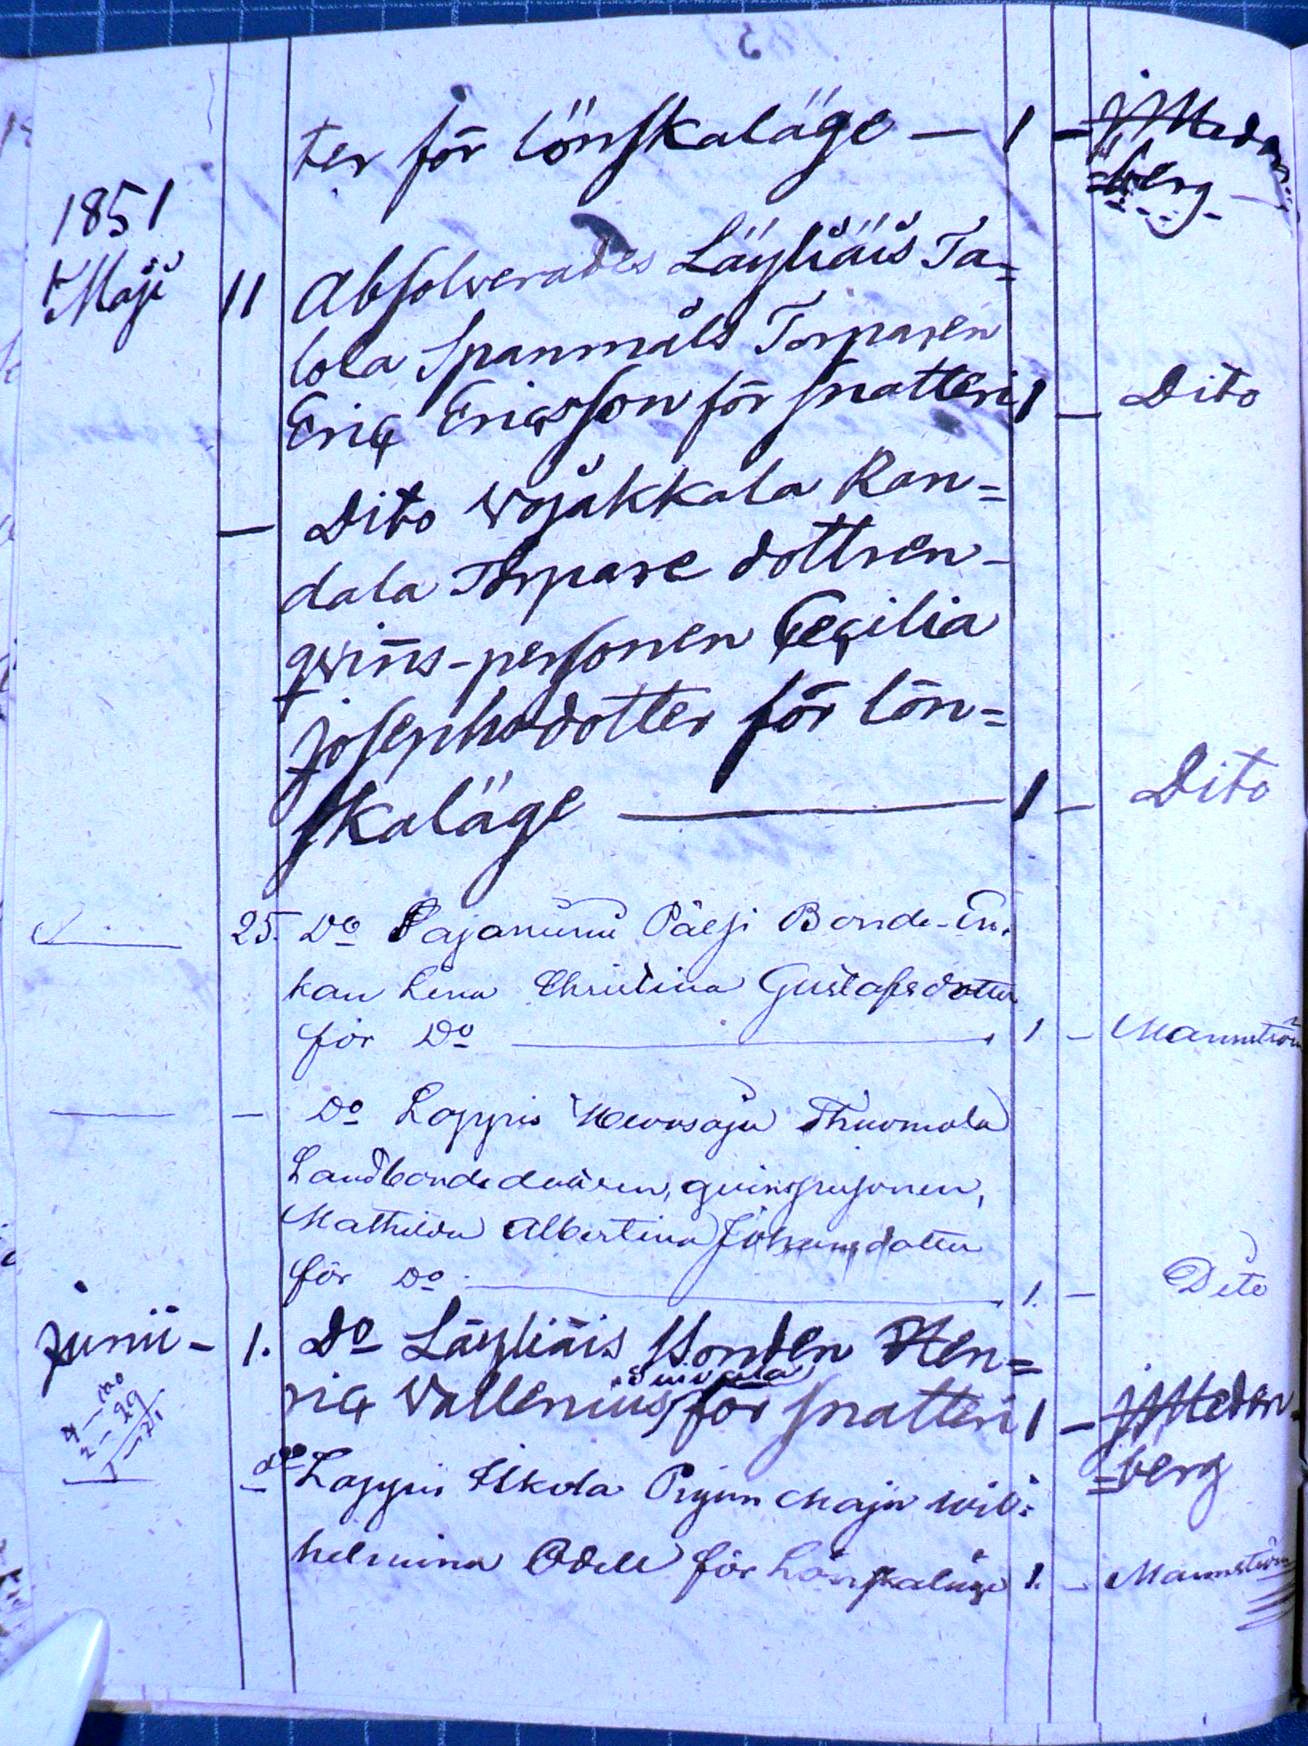 ter för lönskaläge — 1 — J Meden
=berg
1851
Maji 11 Absolverades Läyliäis Ta=
lola Spanmåls Torparen
Eric Ericsson för snatteri 1 — Dito
— Dito Wojakkala Ran=
dala Torpare dottren
qvins-personen Cecilia
Josephsdotter för lön=
skaläge — 1 — Dito
25. Do Sajaniemi Bonde-En-
kan Lena Christina Gustafsdotter
för Do — 1. — Mannström
— Do Loppis Thuomola
Landbondedottren, qvinspersonen,
Mathilda Albertina Johansdotter
för Do — 1. — Dito
Junii — 1. Do Läyliäis Bonden Hen=
Suivala
ric Wallenius för snatteri 1 — J Meden
=berg
do Loppis Pigan Maja Wil=
helmina Odell för Lönskaläge 1. — Mannström